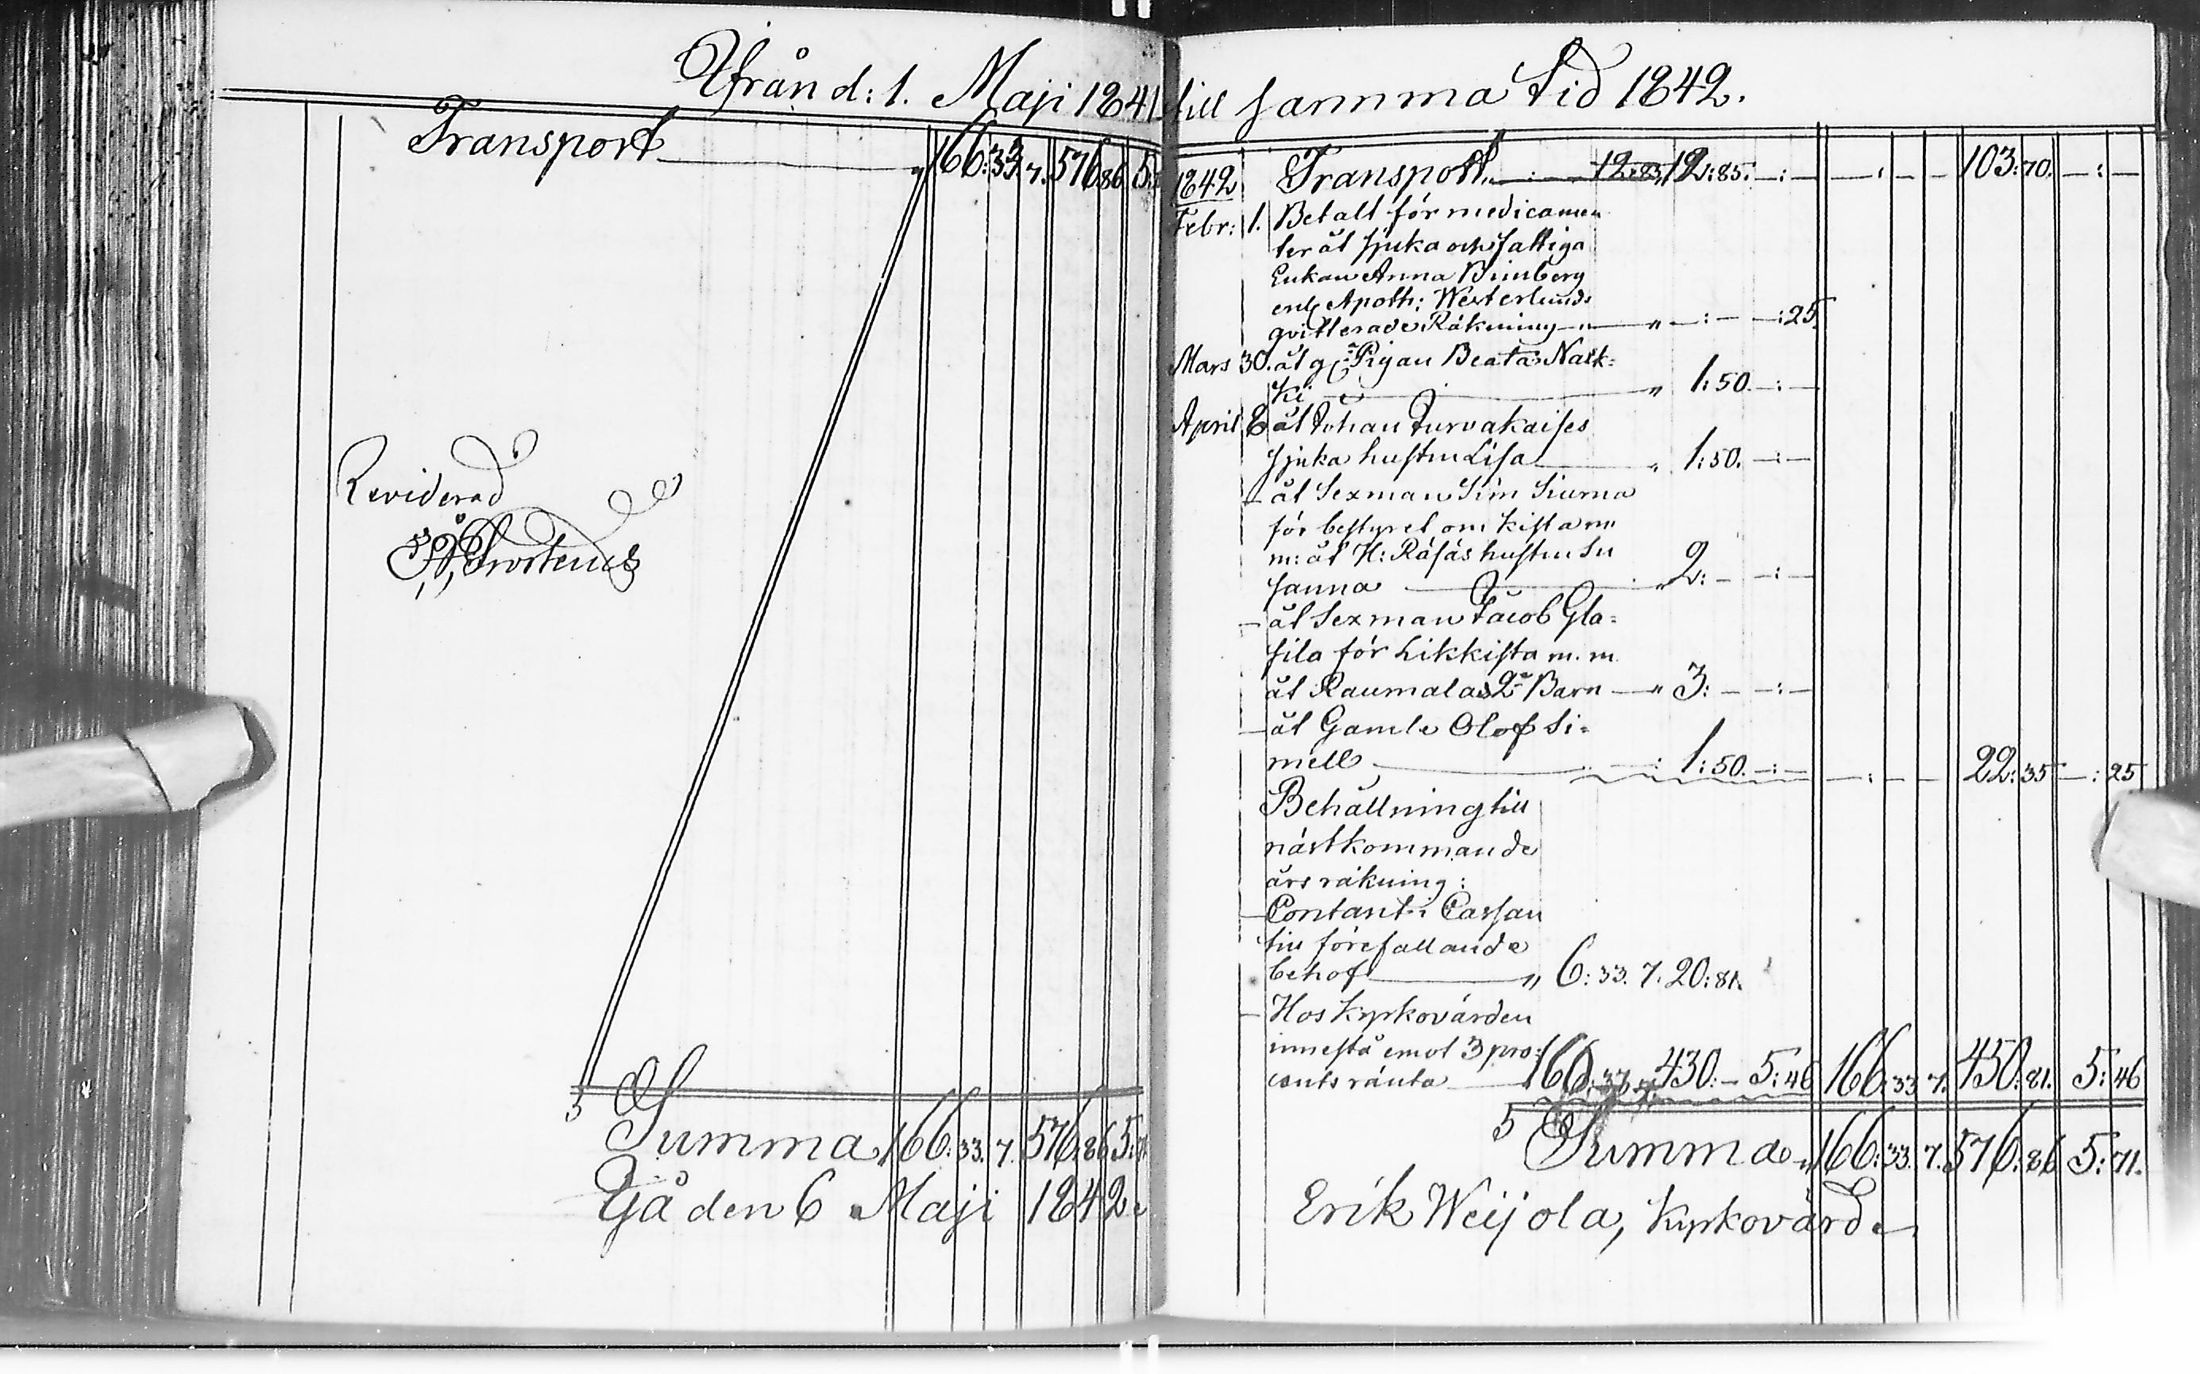 Ifrån d: 1. Maji 1841 till samma tid 1842.
Transport " 166:33. 7. 576:86 5:
Reviderad
Summa 166:33. 7. 576:86 5:71
den 6 Maji 1842.
1842 Transport " 12:85. —:— —:— — 103:70. —:—
Febr: 1. Betalt för medicamen
ter åt sjuka och fattiga
Enkan Anna Bimberg
enl Apoth: Westerlunds
qvitterade Räkning " —:— —:25.
Mars 30. åt Pigan Beata Nask=
ki " 1:50. —:—
April 8 åt Johan Turvakaises
sjuka hustru Lisa " 1:50. —:—
— åt Sexman Sim Siurna
för bestyret om kista m
m: åt H: Räfäs hustru Su
sanna " 2:— —:—
— åt Sexman Jacob Gla=
sila för Likkista m. m
åt Raumalas 2ne Barn — " 3:— —:—
— åt Gamle Olof Si=
mell 1:50. —:— —:— — 22:35 —:25
Behållning till
nästkommande
års räkning:
— Contant i Cassan
till förefallande
behof " 6:33. 7. 20:81.
— Hos Kyrkovärden
innestå emot 3 pro=
cents ränta 160:— 430:— 5:46 166:33 7. 450:81. 5:46
Summa " 166:33. 7. 576:86 5:71.
Erik Weijola, Kyrkovärd